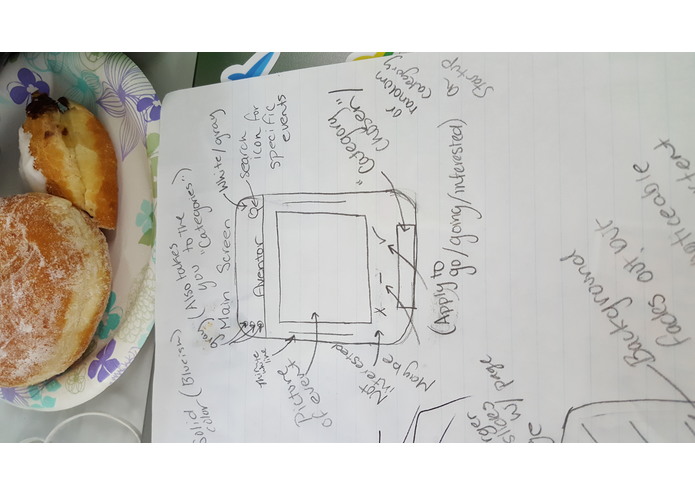 Solid (Blueish)
color
gray (Also takes
you to the
"Categories")
Main Screen
White/gray
Search
icon for
specific
events
Aventor
Picture
of event
X
–
✓
Not
interested
Maybe
(Apply to
go/going/interested)
"Category"/
or
random
category
chosen/
@
Startup
Background
Fades out, but
noticeable
slides
w/ page